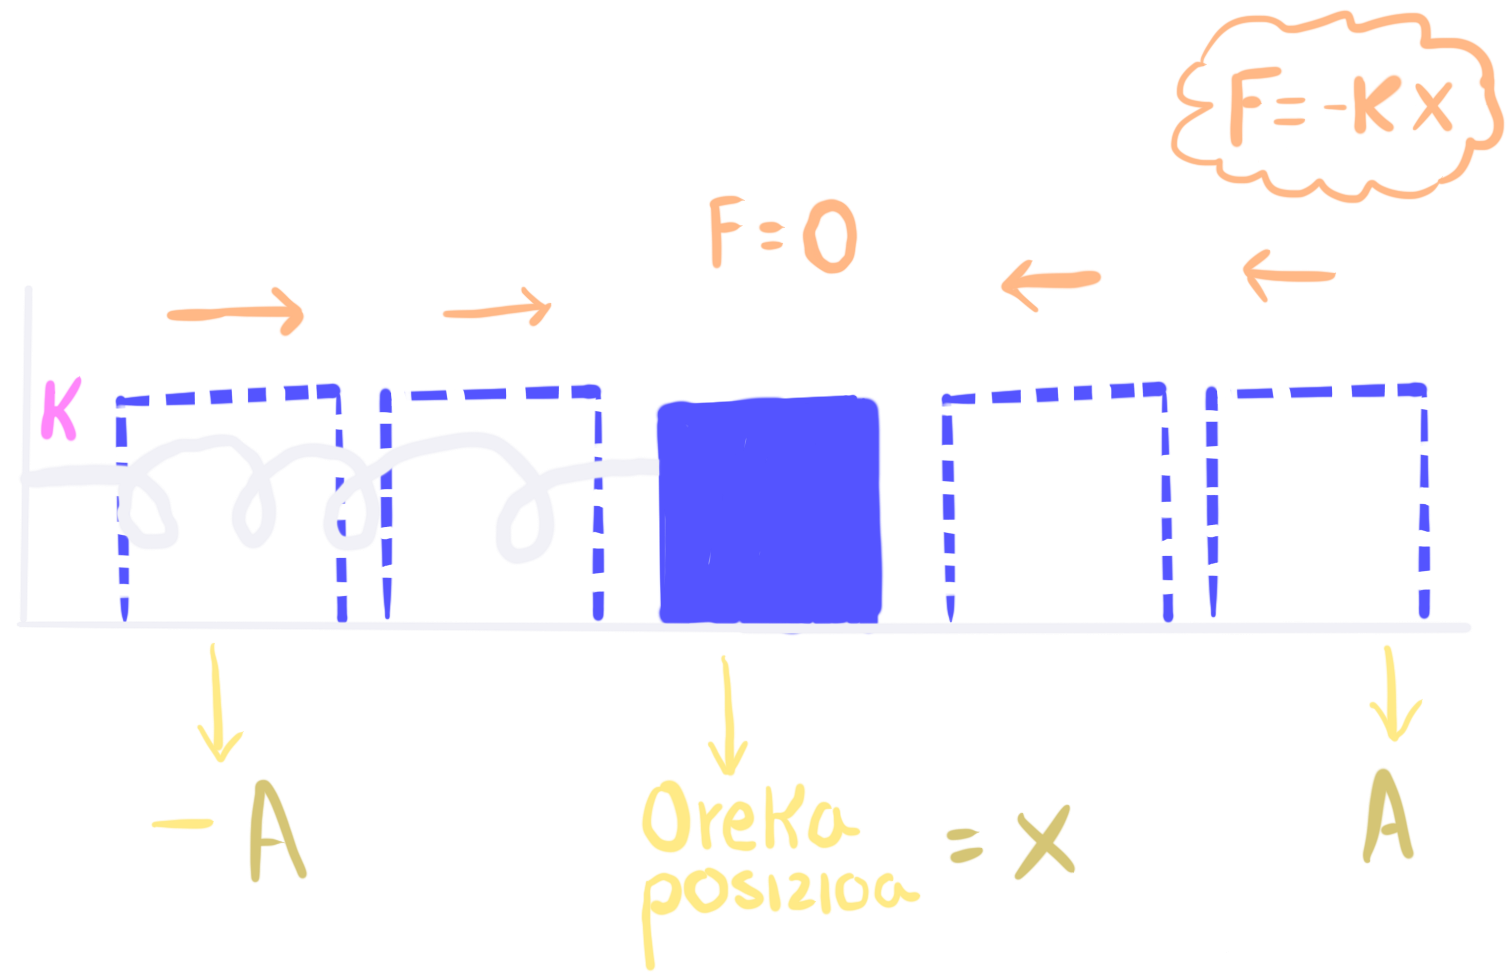 F=-Kx
F=0
K
-A
Oreka
posizioa
= x
A